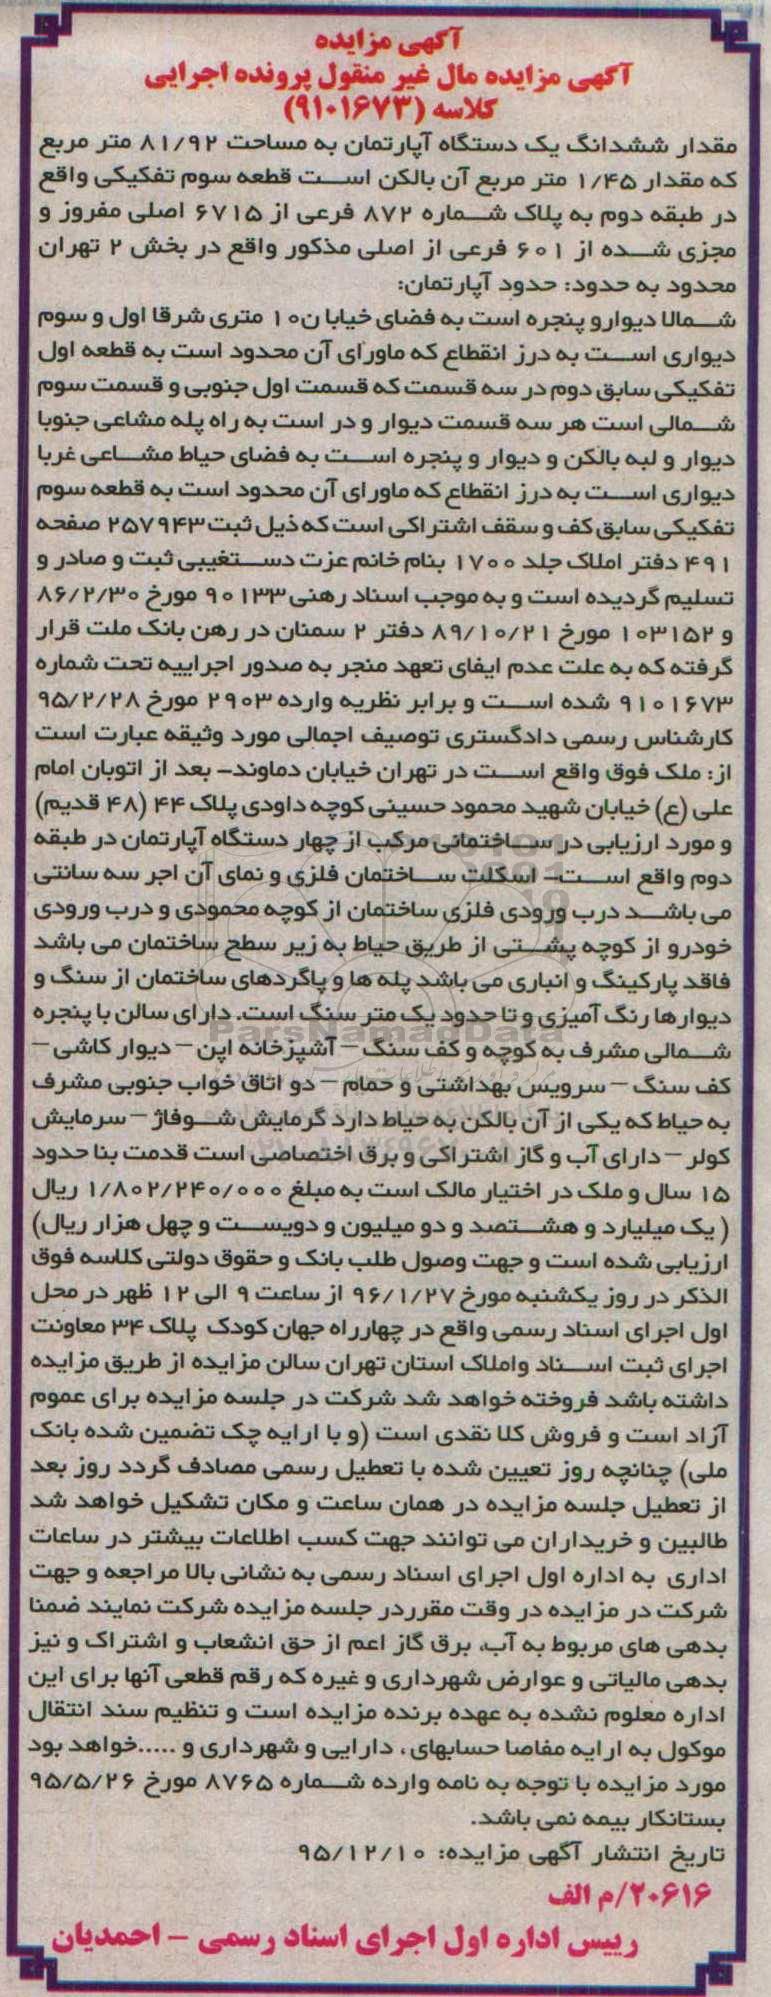 آگهی مزایده
آگهی مزایده مال غیر منقول پرونده اجرایی
کلاسه (۹۱۰۱۶۷۳)
مقدار ششدانگ یک دستگاه آپارتمان به مساحت ۸۱/۹۲ متر مربع
که مقدار ۱/۴۵ متر مربع آن بالکن است قطعه سوم تفکیکی واقع
در طبقه دوم به پلاک شماره ۸۷۲ فرعی از ۶۷۱۵ اصلی مفروز و
مجزی شده از ۶۰۱ فرعی از اصلی مذکور واقع در بخش ۲ تهران
محدود به حدود: حدود آپارتمان:
شمالا دیوارو پنجره است به فضای خیابا ن۱۰ متری شرقا اول و سوم
دیواری است به درز انقطاع که ماورای آن محدود است به قطعه اول
تفکیکی سابق دوم در سه قسمت که قسمت اول جنوبی و قسمت سوم
شمالی است هر سه قسمت دیوار و در است به راه پله مشاعی جنوبا
دیوار و لبه بالکن و دیوار و پنجره است به فضای حیاط مشاعی غربا
دیواری است به درز انقطاع که ماورای آن محدود است به قطعه سوم
تفکیکی سابق کف و سقف اشتراکی است که ذیل ثبت ۲۵۷۹۴۳ صفحه
۴۹۱ دفتر املاک جلد ۱۷۰۰ بنام خانم عزت دستغیبی ثبت و صادر و
تسلیم گردیده است و به موجب اسناد رهنی ۹۰۱۳۳ مورخ ۸۶/۲/۳۰
و ۱۰۳۱۵۲ مورخ ۸۹/۱۰/۲۱ دفتر ۲ سمنان در رهن بانک ملت قرار
گرفته که به علت عدم ایفای تعهد منجر به صدور اجراییه تحت شماره
۹۱۰۱۶۷۳ شده است و برابر نظریه وارده ۲۹۰۳ مورخ ۹۵/۲/۲۸
کارشناس رسمی دادگستری توصیف اجمالی مورد وثیقه عبارت است
از: ملک فوق واقع است در تهران خیابان دماوند- بعد از اتوبان امام
علی (ع) خیابان شهید محمود حسینی کوچه داودی پلاک ۴۴ (۴۸ قدیم)
و مورد ارزیابی در ساختمانی مرکب از چهار دستگاه آپارتمان در طبقه
دوم واقع است- اسکلت ساختمان فلزی و نمای آن اجر سه سانتی
می باشد درب ورودی فلزی ساختمان از کوچه محمودی و درب ورودی
خودرو از کوچه پشتی از طریق حیاط به زیر سطح ساختمان می باشد
فاقد پارکینگ و انباری می باشد پله ها و پاگردهای ساختمان از سنگ و
دیوارها رنگ آمیزی و تا حدود یک متر سنگ است. دارای سالن با پنجره
شمالی مشرف به کوچه و کف سنگ – آشپزخانه اپن – دیوار کاشی –
کف سنگ – سرویس بهداشتی و حمام – دو اتاق خواب جنوبی مشرف
به حیاط که یکی از آن بالکن به حیاط دارد گرمایش شوفاژ – سرمایش
کولر – دارای آب و گاز اشتراکی و برق اختصاصی است قدمت بنا حدود
۱۵ سال و ملک در اختیار مالک است به مبلغ ۱/۸۰۲/۲۴۰/۰۰۰ ریال
( یک میلیارد و هشتصد و دو میلیون و دویست و چهل هزار ریال)
ارزیابی شده است و جهت وصول طلب بانک و حقوق دولتی کلاسه فوق
الذکر در روز یکشنبه مورخ ۹۶/۱/۲۷ از ساعت ۹ الی ۱۲ ظهر در محل
اول اجرای اسناد رسمی واقع در چهارراه جهان کودک پلاک ۳۴ معاونت
اجرای ثبت اسناد واملاک استان تهران سالن مزایده از طریق مزایده
داشته باشد فروخته خواهد شد شرکت در جلسه مزایده برای عموم
آزاد است و فروش کلا نقدی است (و با ارایه چک تضمین شده بانک
ملی) چنانچه روز تعیین شده با تعطیل رسمی مصادف گردد روز بعد
از تعطیل جلسه مزایده در همان ساعت و مکان تشکیل خواهد شد
طالبین و خریداران می توانند جهت کسب اطلاعات بیشتر در ساعات
اداری به اداره اول اجرای اسناد رسمی به نشانی بالا مراجعه و جهت
شرکت در مزایده در وقت مقرردر جلسه مزایده شرکت نمایند ضمنا
بدهی های مربوط به آب، برق گاز اعم از حق انشعاب و اشتراک و نیز
بدهی مالیاتی و عوارض شهرداری و غیره که رقم قطعی آنها برای این
اداره معلوم نشده به عهده برنده مزایده است و تنظیم سند انتقال
موکول به ارایه مفاصا حسابهای، دارایی و شهرداری و .....خواهد بود
مورد مزایده با توجه به نامه وارده شماره ۸۷۶۵ مورخ ۹۵/۵/۲۶
بستانکار بیمه نمی باشد.
تاریخ انتشار آگهی مزایده: ۹۵/۱۲/۱۰
۲۰۶۱۶/م الف
رییس اداره اول اجرای اسناد رسمی – احمدیان
ParsNamadData